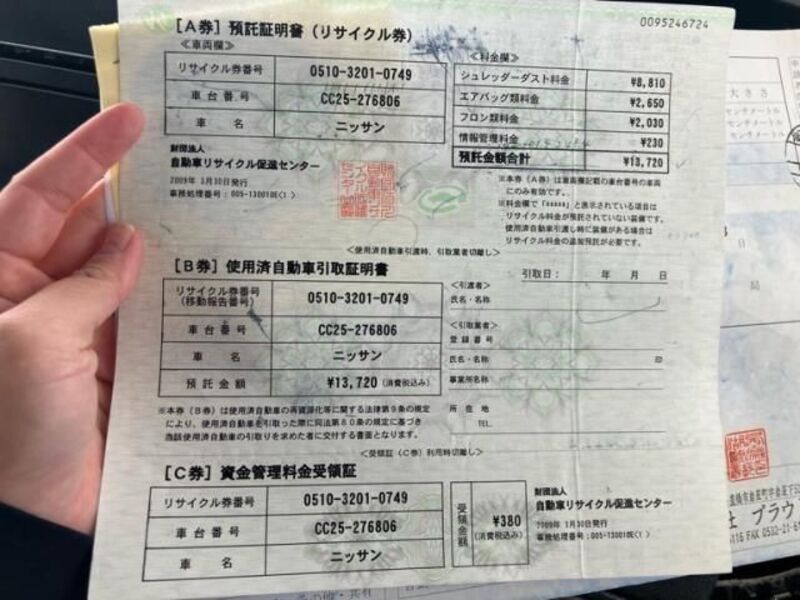 0095246724
[A券] 預託証明書 (リサイクル券)
≪車両欄≫
リサイクル券番号 0510-3201-0749
車台番号 CC25-276806
車名 ニッサン
≪料金欄≫
シュレッダーダスト料金 ¥8,810
エアバッグ類料金 ¥2,650
フロン類料金 ¥2,030
情報管理料金 ¥230
預託金額合計 ¥13,720
財団法人
自動車リサイクル促進センター
2009年 3月30日発行
事務処理番号:005-130010E(1)
※本券(A券)は車両欄記載の車台番号の車両
にのみ有効です。
※料金欄で「*****」と表示されている場合は
リサイクル料金が預託されていない装備です。
使用済自動車引渡し時に装備がある場合は
リサイクル料金の追加預託が必要です。
<使用済自動車引渡時、引取業者切離し>
[B券] 使用済自動車引取証明書
リサイクル券番号
(移動報告番号) 0510-3201-0749
車台番号 CC25-276806
車名 ニッサン
預託金額 ¥13,720 (消費税込み)
引取日: 年 月 日
<引渡者>
氏名・名称
<引取業者>
登録番号
氏名・名称 印
事業所名
所在地
TEL.
※本券(B券)は使用済自動車の再資源化等に関する法律第9条の規定
により、使用済自動車を引取った際に同法第80条の規定に基づき
当該使用済自動車の引取りを求めた者に交付する書面となります。
<受領証(C券)利用時切離し>
[C券] 資金管理料金受領証
リサイクル券番号 0510-3201-0749
車台番号 CC25-276806
車名 ニッサン
受領金額 ¥380
(消費税込み)
財団法人
自動車リサイクル促進センター
2009年 3月30日発行
事務処理番号:005-130010E(1)
大きさ
センチメートル
センチメートル
センチメートル
日
局
社 ブラウ
6116 FAX 0532-21-6